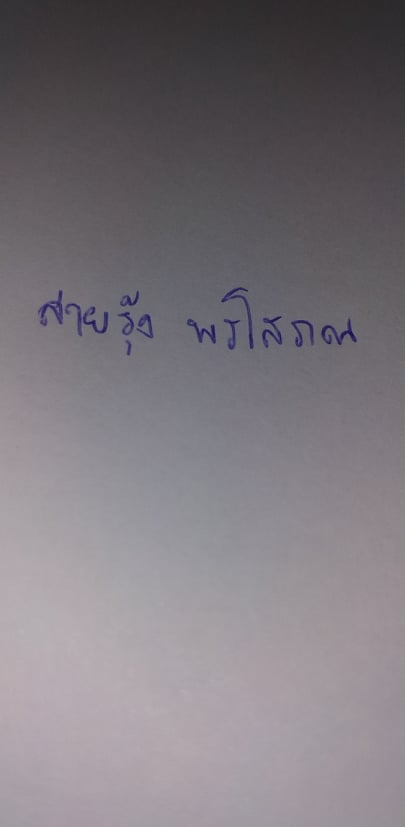 สายรุ้ง พรโสภณ